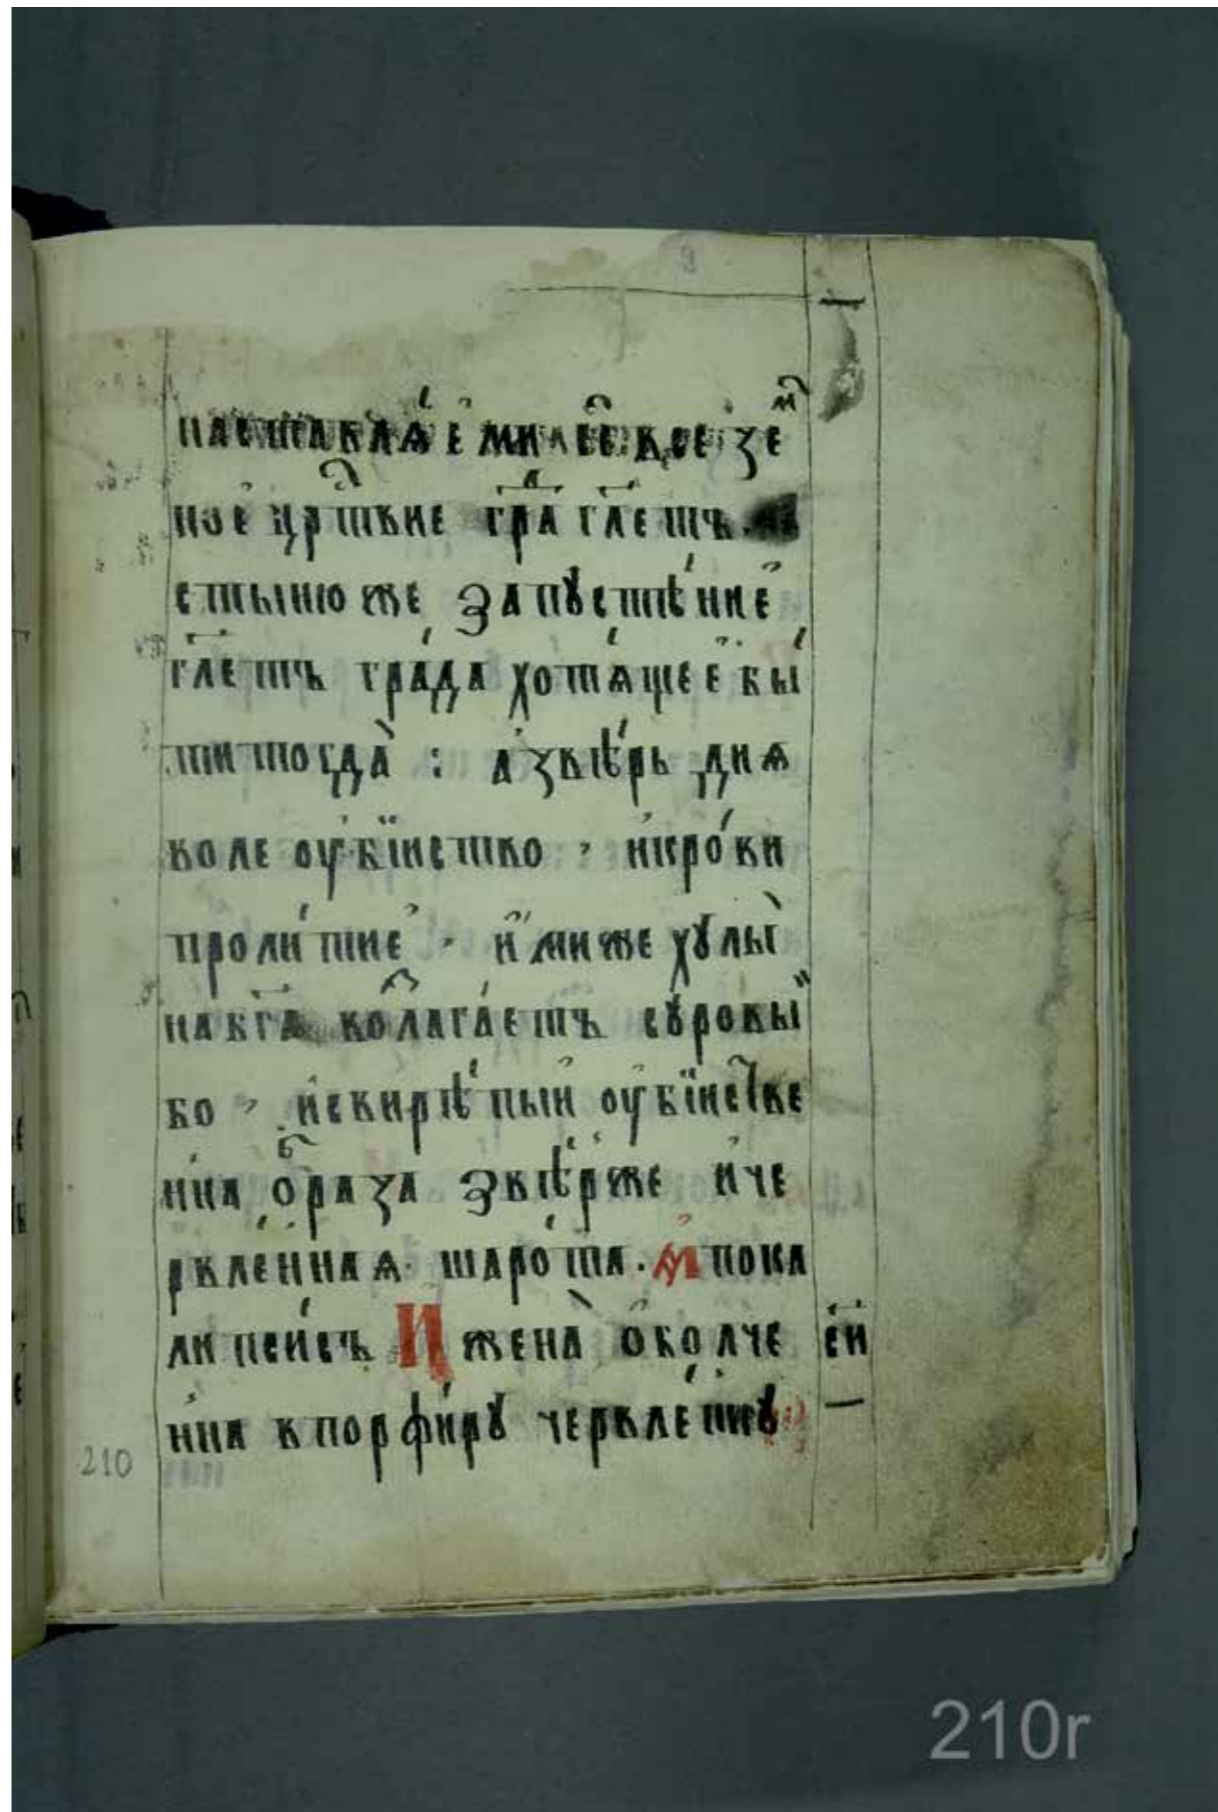 ное црⷭ҇твие гра гл҃етъ
стынюже запꙋстѣние
гл҃етъ града хотѧщее бы
ти тогда : а звѣрь диѧ
воле оубїиство , и крови
пролитие , ими же хꙋлы
на бг҃а возлагаетъ сꙋровы
бо , и свирѣпыи оубїистве
нна ѻбраза звѣрѧ же и че
рвленнаѧ шарота . Ап пока
липсисъ И жена ѻболче
нна в порфирꙋ червленнꙋ
си
210
210r